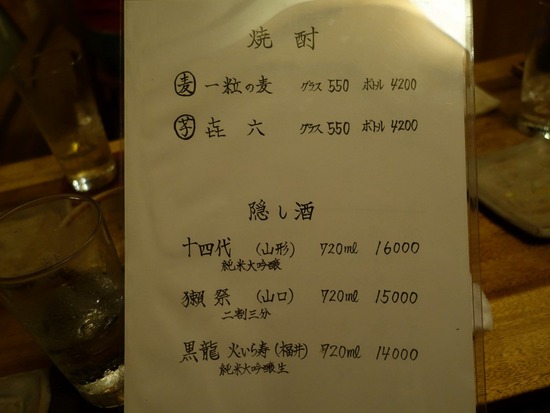 焼酎
麦 一粒の麦 グラス 550 ボトル 4200
芋 㐂六 グラス 550 ボトル 4200
隠し酒
十四代 (山形) 720ml 16000
純米大吟醸
獺祭 (山口) 720ml 15000
二割三分
黒龍 火いら寿 (福井) 720ml 14000
純米大吟醸生